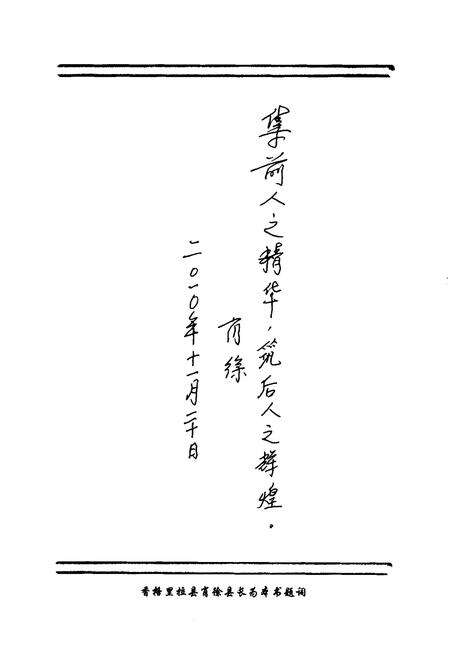 集前人之精华，筑后人之辉煌。
肖徐
二〇一〇年十一月二十日
香格里拉县肖徐县长为本书题词